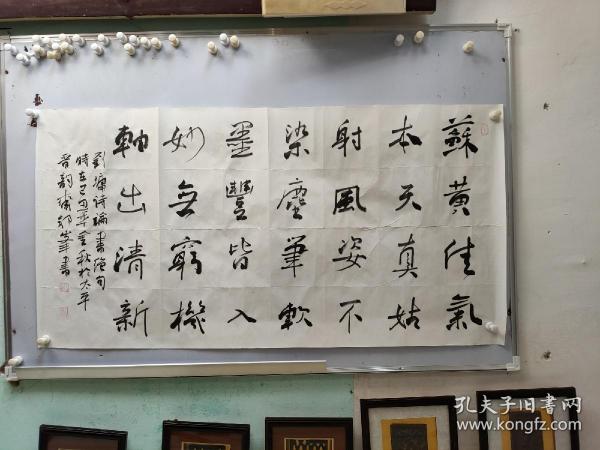 蘇黃佳氣
本天真姑
射風姿不
染塵筆軟
墨豐皆入
妙無窮機
軸出清新
劉墉詩論書絕句
時在己丑年金秋於太平
孔夫子旧书网
www.kongfz.com